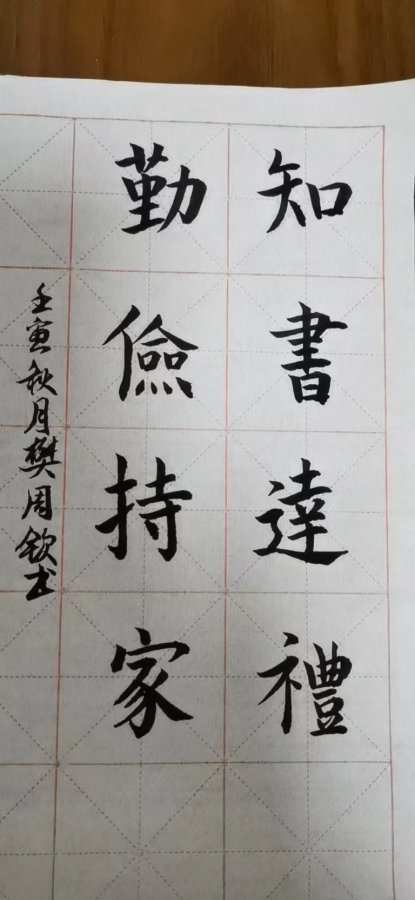 知書達禮
勤儉持家
壬寅秋月樊周欽书